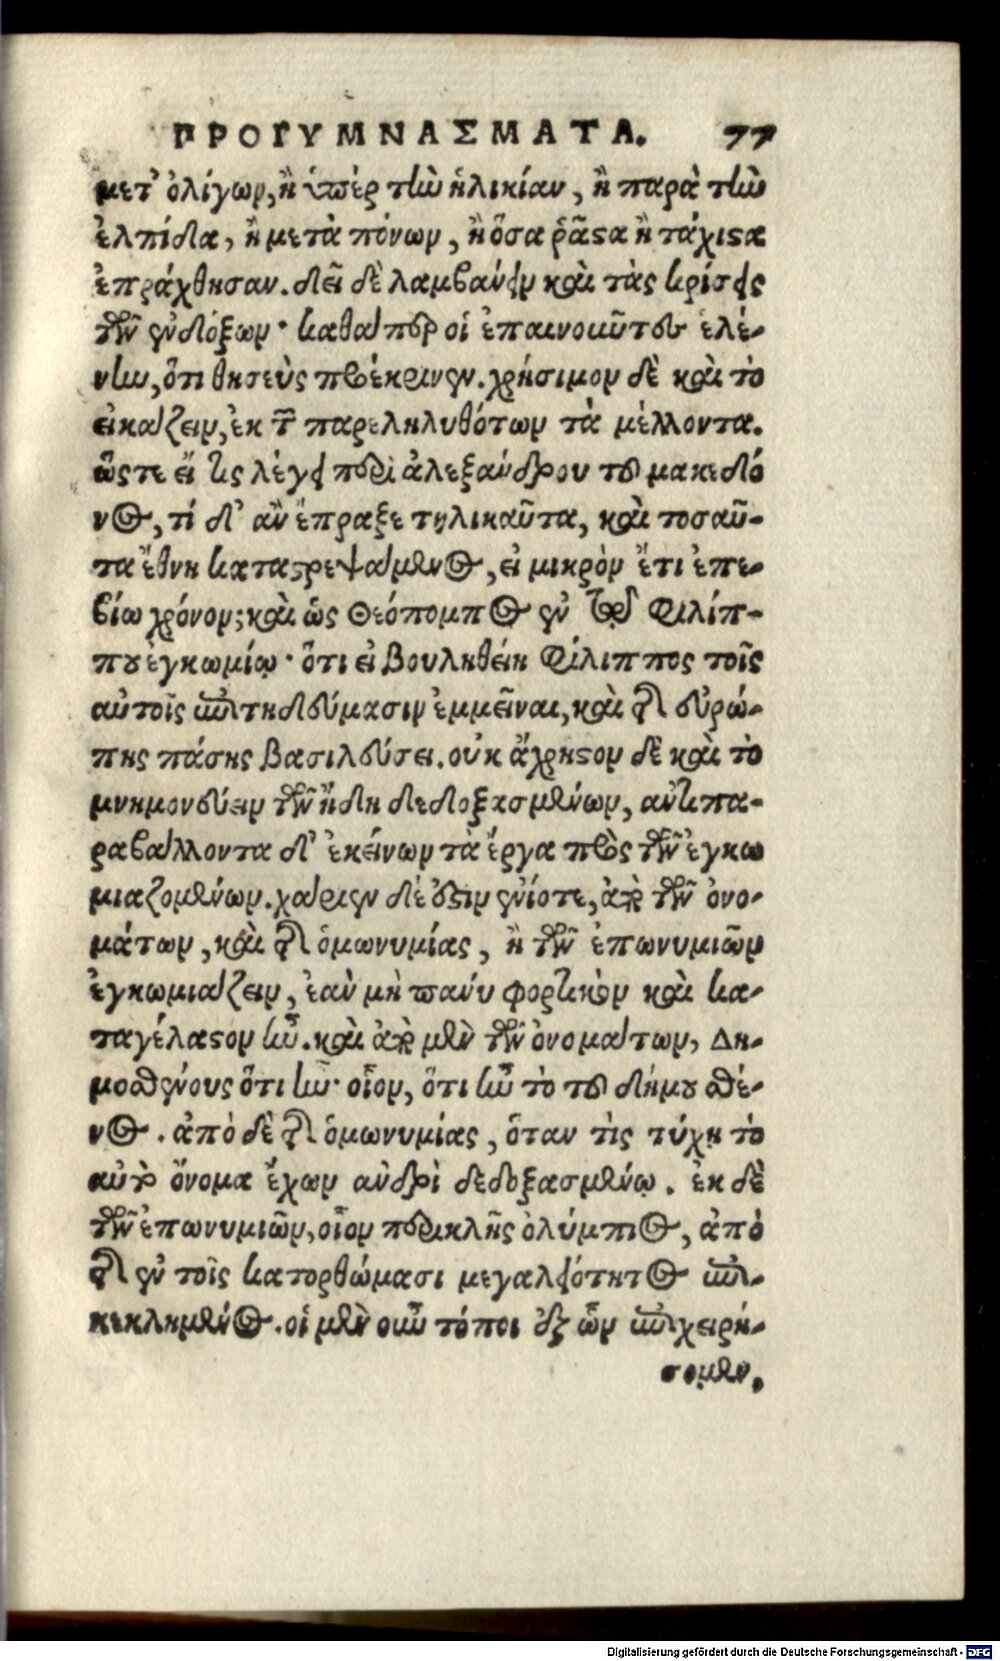 ΠΡΟΓΥΜΝΑΣΜΑΤΑ. 77
μετ' ὀλίγων, ἢ ὑπὲρ τὴν ἡλικίαν, ἢ παρὰ τὴν
ἐλπίδα, ἢ μετὰ πόνων, ἢ ὅσα ῥᾷστα ἢ τάχιστα
ἐπράχθησαν. δεῖ δὲ λαμβάνειν καὶ τὰς κρίσεις
τῶν ἐνδόξων· καθάπερ οἱ ἐπαινοῦντες ἑλέ-
νην, ὅτι θησεὺς προέκρινεν. χρήσιμον δὲ καὶ τὸ
εἰκάζειν, ἐκ τῶν παρεληλυθότων τὰ μέλλοντα.
ὥστε εἴ τις λέγει περὶ ἀλεξάνδρου τοῦ μακεδό
νος, τί δ' ἂν ἔπραξε τηλικαῦτα, καὶ τοσαῦ-
τα ἔθνη καταστρεψάμενος, εἰ μικρὸν ἔτι ἐπε-
βίω χρόνον; καὶ ὡς Θεόπομπος ἐν τῷ Φιλίπ-
που ἐγκωμίῳ· ὅτι εἰ βουληθείη Φίλιππος τοῖς
αὐτοῖς ἐπιτηδεύμασιν ἐμμεῖναι, καὶ τῆς εὐρώ-
πης πάσης βασιλεύσει. οὐκ ἄχρηστον δὲ καὶ τὸ
μνημονεύειν τῶν ἤδη δεδοξασμένων, ἀντιπα-
ραβάλλοντα δ' ἐκείνων τὰ ἔργα πρὸς τῶν ἐγκω
μιαζομένων. χάριεν δέ ἐστιν ἐνίοτε, ἀπὸ τῶν ὀνο-
μάτων, καὶ τῆς ὁμωνυμίας, ἢ τῶν ἐπωνυμιῶν
ἐγκωμιάζειν, ἐὰν μὴ πάνυ φορτικὸν καὶ κα-
ταγέλαστον ᾖ. καὶ ἀπὸ μὲν τῶν ὀνομάτων, Δη-
μοσθένους ὅτι ἦν· οἷον, ὅτι ἦν τὸ τοῦ δήμου σθέ-
νος. ἀπὸ δὲ τῆς ὁμωνυμίας, ὅταν τὶς τύχῃ τὸ
αὐτὸ ὄνομα ἔχων ἀνδρὶ δεδοξασμένῳ. ἐκ δὲ
τῶν ἐπωνυμιῶν, οἷον περικλῆς ὀλύμπιος, ἀπὸ
τῆς ἐν τοῖς κατορθώμασι μεγαλειότητος ἐπι-
κεκλημένος. οἱ μὲν οὖν τόποι ἐξ ὧν ἐπιχειρή-
σομεν,
Digitalisierung gefördert durch die Deutsche Forschungsgemeinschaft - DFG